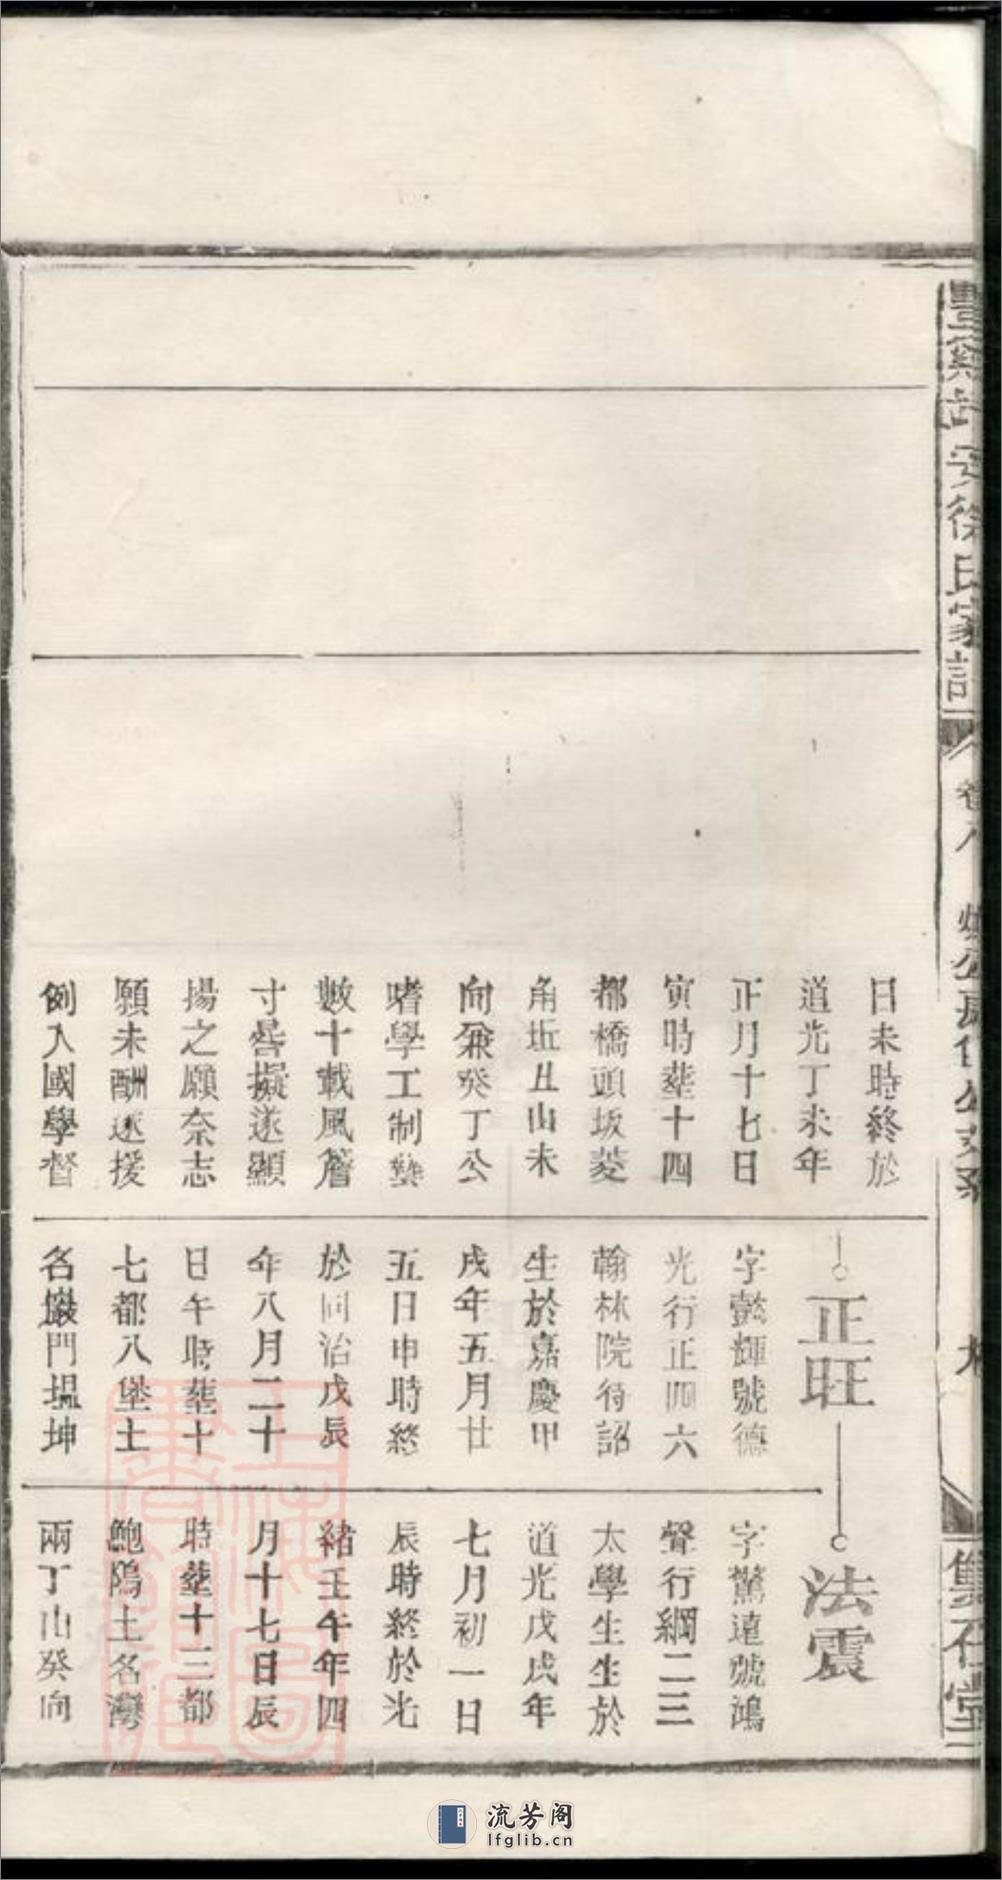 日未時終於
道光丁未年
正月十七日
寅時塟十四
都橋頭坂菱
角坵丑山未
向兼癸丁公
嗜學工制藝
數十載風簷
寸晷擬遂顯
揚之願奈志
願未酬遂援
例入國學督
正旺
字懿輝號德
光行正四六
翰林院待詔
生於嘉慶甲
戌年五月廿
五日申時終
於同治戊辰
年八月二十
日午時塟十
七都八堡土
名巖門塭坤
法震
字驚遠號鴻
聲行綱二三
太學生生於
道光戊戌年
七月初一日
辰時終於光
緒壬午年四
月十七日辰
時塟十三都
鮑隝土名灣
兩丁山癸向
徐氏家
卷八
堂
上海圖
書館藏
流芳阁
lfglib.cn